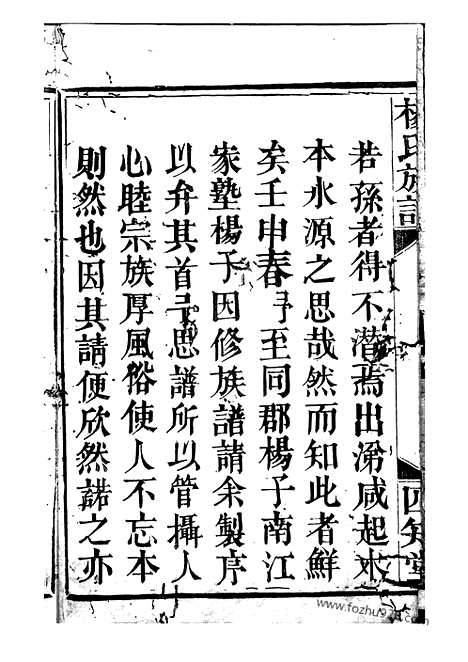 楊氏族譜
四知堂
若孫者得不潸焉出涕咸起木
本水源之思哉然而知此者鮮
矣壬申春予至同郡楊子南江
家塾楊子因修族譜請余製序
以弁其首予思譜所以管攝人
心睦宗族厚風俗使人不忘本
則然也因其請便欣然諾之亦